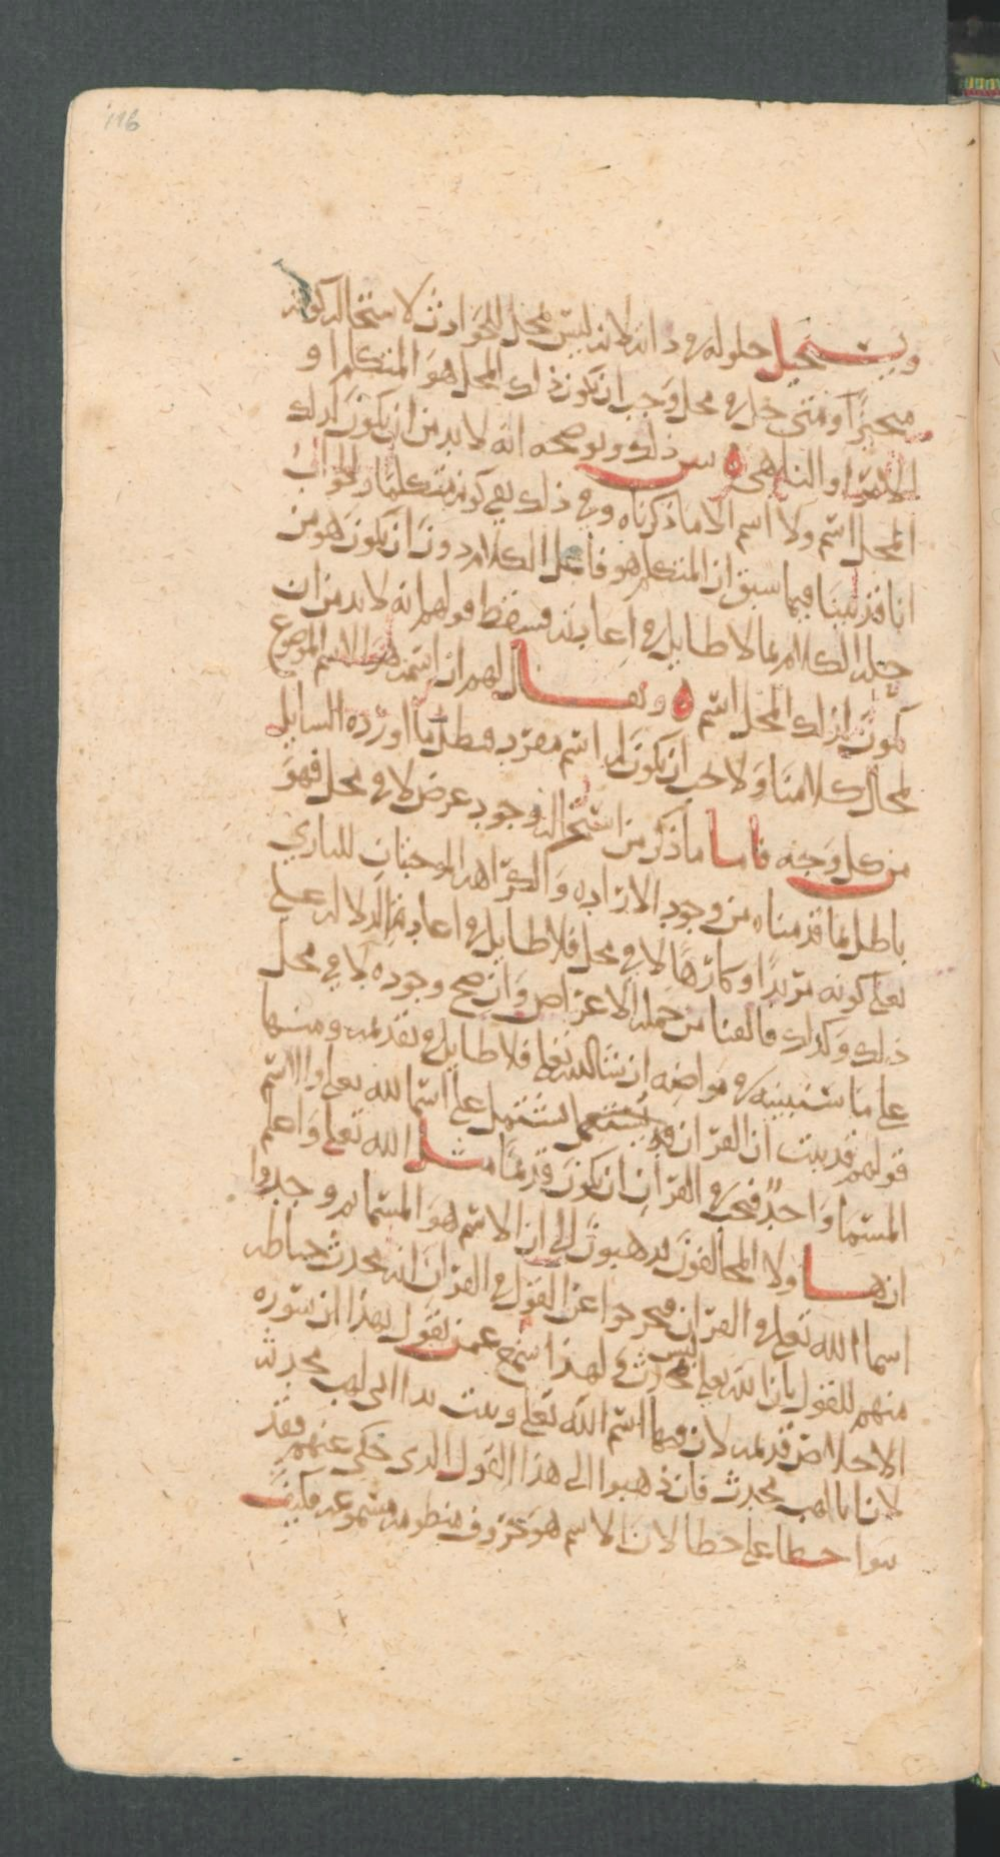 116
ويستحيل حلوله في ذاته لانه ليس بمحل للحوادث لاستحالة كونه
متحيزا ومتى حل في محل وجب ان يكون ذلك المحل هو المتكلم او
الامر او الناهي ه يبين ذلك ويوضحه انه لا بد من ان يكون لذلك
المحل اسم ولا اسم الا ما ذكرناه وفي ذلك نفي كونه متكلما والجواب
انا قد بينا فيما سبق ان المتكلم هو فاعل الكلام دون ان يكون هو من
حله الكلام بما لا طايل في اعادته فسقط قولهم انه لا بد من ان
يكون لذلك المحل اسم ه ويقال لهم ان اسمه هو الاسم الموضوع
لمحال كلامنا ولا يجب ان يكون له اسم مفرد فبطل ما اورده السايل
من كل وجه فاما ما ذكر من استحالة وجود عرض لا في محل فهو
باطل لما قدمناه من وجود الارادة والكراهة الموجبتان للباري
تعلى كونه مريدا وكارها لا في محل فلا طايل في اعادة الدلالة على
ذلك وكذلك فالفنا من جملة الاعراض وان صح وجوده لا في محل
على ما سنبينه في مواضعه ان شا الله تعلى فلا طايل في تقديمه ومنها
قولهم قد ثبت ان القران يشتمل على اسما الله تعلى والاسم
المسما واحد فيجب في القران ان يكون قديما مثل الله تعلى واعلم
ان هاولا المخالفون يذهبون الى ان الاسم هو المسما ثم وجدوا
اسما الله تعلى في القران فتحرجوا عن القول في القران انه محدث حياطة
منهم للقول بان الله تعلى ليس بمحدث لهذا سمع عمن يقول بهذا ان سورة
الاخلاص قديمة لان فيها اسم الله تعلى وتبت يدا ابي لهب محدثة
لان ابا لهب محدث فان ذهبوا الى هذا القول الذي حكي عنهم فقد
بنوا خطا على خطا لان الاسم هو حروف منظومة مسموعة فكيف